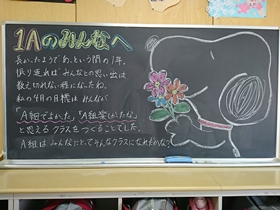 1Aのみんなへ
長かったようで、あっという間の1年。
振り返ればみんなとの思い出は、
数え切れない程になったね。
私の4月の目標は、みんなが
「A組でよかった」「A組楽しかったな」
と思えるクラスをつくることでした。
A組はみんなにとってそんなクラスになれたかな?